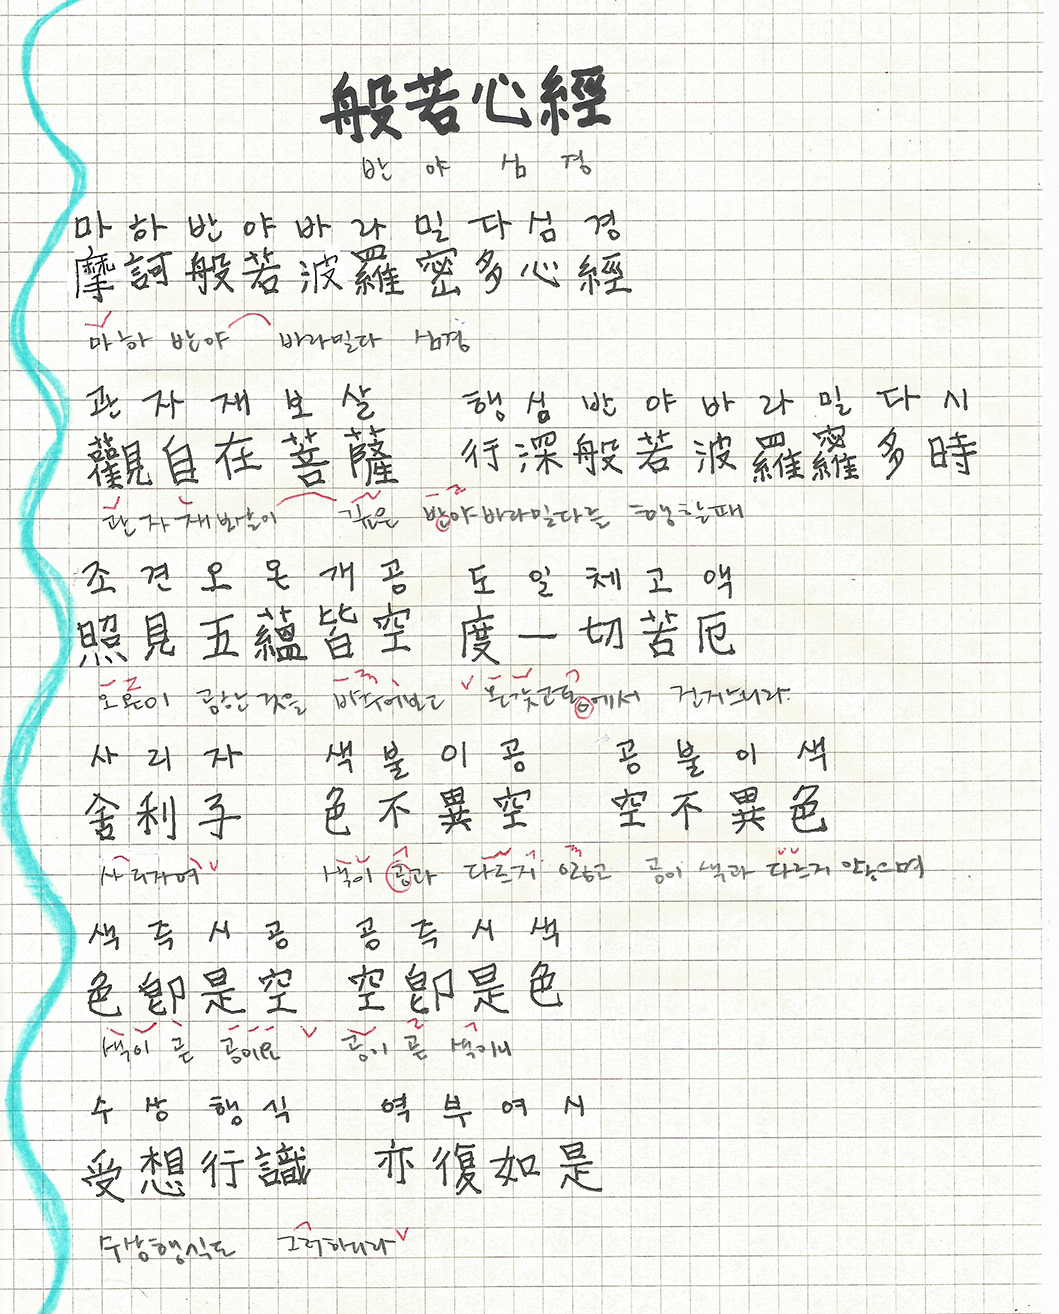 般若心經
반야 심경
마하반야바라밀다심경
摩訶般若波羅密多心經
마하 반야 바라밀다 심경
관자재보살 행심반야바라밀다시
觀自在菩薩 行深般若波羅羅多時
관자재보살이 깊은 반야바라밀다를 행할때
조견오온개공 도일체고액
照見五蘊皆空 度一切苦厄
오온이 공한 것을 비추어보고 온갖고통에서 건지느니라.
사리자 색불이공 공불이색
舍利子 色不異空 空不異色
사리자여 색이 공과 다르지 않고 공이 색과 다르지 않으며
색즉시공 공즉시색
色卽是空 空卽是色
색이 곧 공이요 공이 곧 색이니
수상행식 역부여시
受想行識 亦復如是
수상행식도 그러하니라